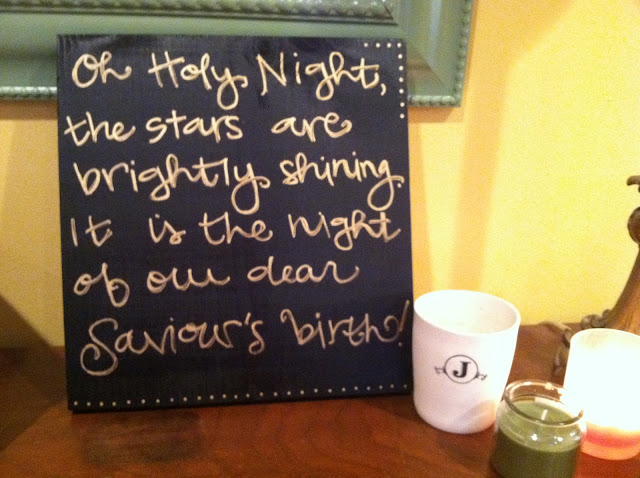 Oh Holy Night,
the stars are
brightly shining.
It is the night
of our dear
Saviour's birth!
J